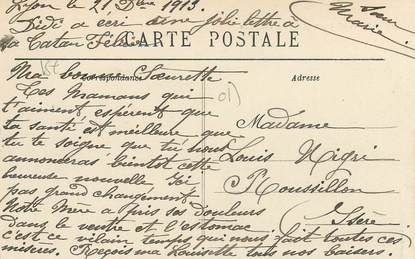 Lyon le 21 Dbre 1913.
Didi a écri une jolie lettre à
sa Tatan Féli
CARTE POSTALE
Correspondance
Adresse
Ma bonne Sœurette
Tes Mamans qui
t'aiment, espérent que
ta santé est meilleure que
tu te soigne que tu nous
annonceras bientôt cette
heureuse nouvelle. Ici
pas grand changement
Notre Mère a puis ses douleurs
dans le ventre et l'estomac
c'est ce vilain temps qui nous fait toutes ces
misères. Reçois ma Louisette tous nos baisers.
Ta Sœur
Marie
Madame
Louis Nigri
Roussillon
Isère